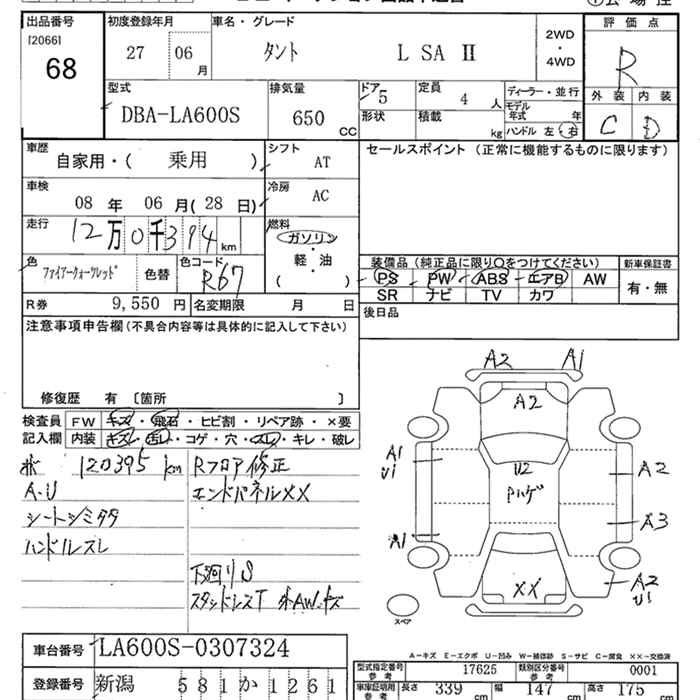 出品番号 初度登録年月 車名・グレード 評価点
[2066]
68
27 06月 タント L SA Ⅱ 2WD・4WD R
型式 排気量 ドア 定員 ディーラー・並行 外装 内装
DBA-LA600S 650 CC 5 4 人 モデル年式 年 C D
形状 積載 kg ハンドル 左・右
車歴 シフト セールスポイント (正常に機能するものに限ります)
自家用・( 乗用 ) AT
車検 冷房
08 年 06 月 ( 28 日) AC
走行 燃料
12万0千394 km ガソリン
軽・油
( )
色 色コード 装備品 (純正品に限り○をつけてください) 新車保証書
ファイアークォーツレッド 色替 R67 PS PW ABS エアB AW 有・無
SR ナビ TV カワ
R券 9,550 円 名変期限 月 日 後日品
注意事項申告欄(不具合内容等は具体的に記入して下さい)
修復歴 有 〔箇所 〕
検査員 FW キズ・飛石・ヒビ割・リペア跡・×要
記入欄 内装 キズ・汚レ・コゲ・穴・スレ・キレ・破レ
120395 km Rフロア修正
A・U エンドパネルXX
シートシミタタ
ハンドルスレ
下廻りS
スタッドレスT 外AWキズ
A2 A1
A2
A1
U1
U2
Pハゲ
A2
A3
A1
XX
A2
U1
スペア
A-キズ E-エクボ U-凹み W-補修跡 S-サビ C-腐食 XX-交換済
車台番号 LA600S-0307324
型式指定番号 参考 17625 類別区分番号 参考 0001
登録番号 新潟 581 か 1261
車庫証明用 参考 長さ 339 cm 幅 147 cm 高さ 175 cm